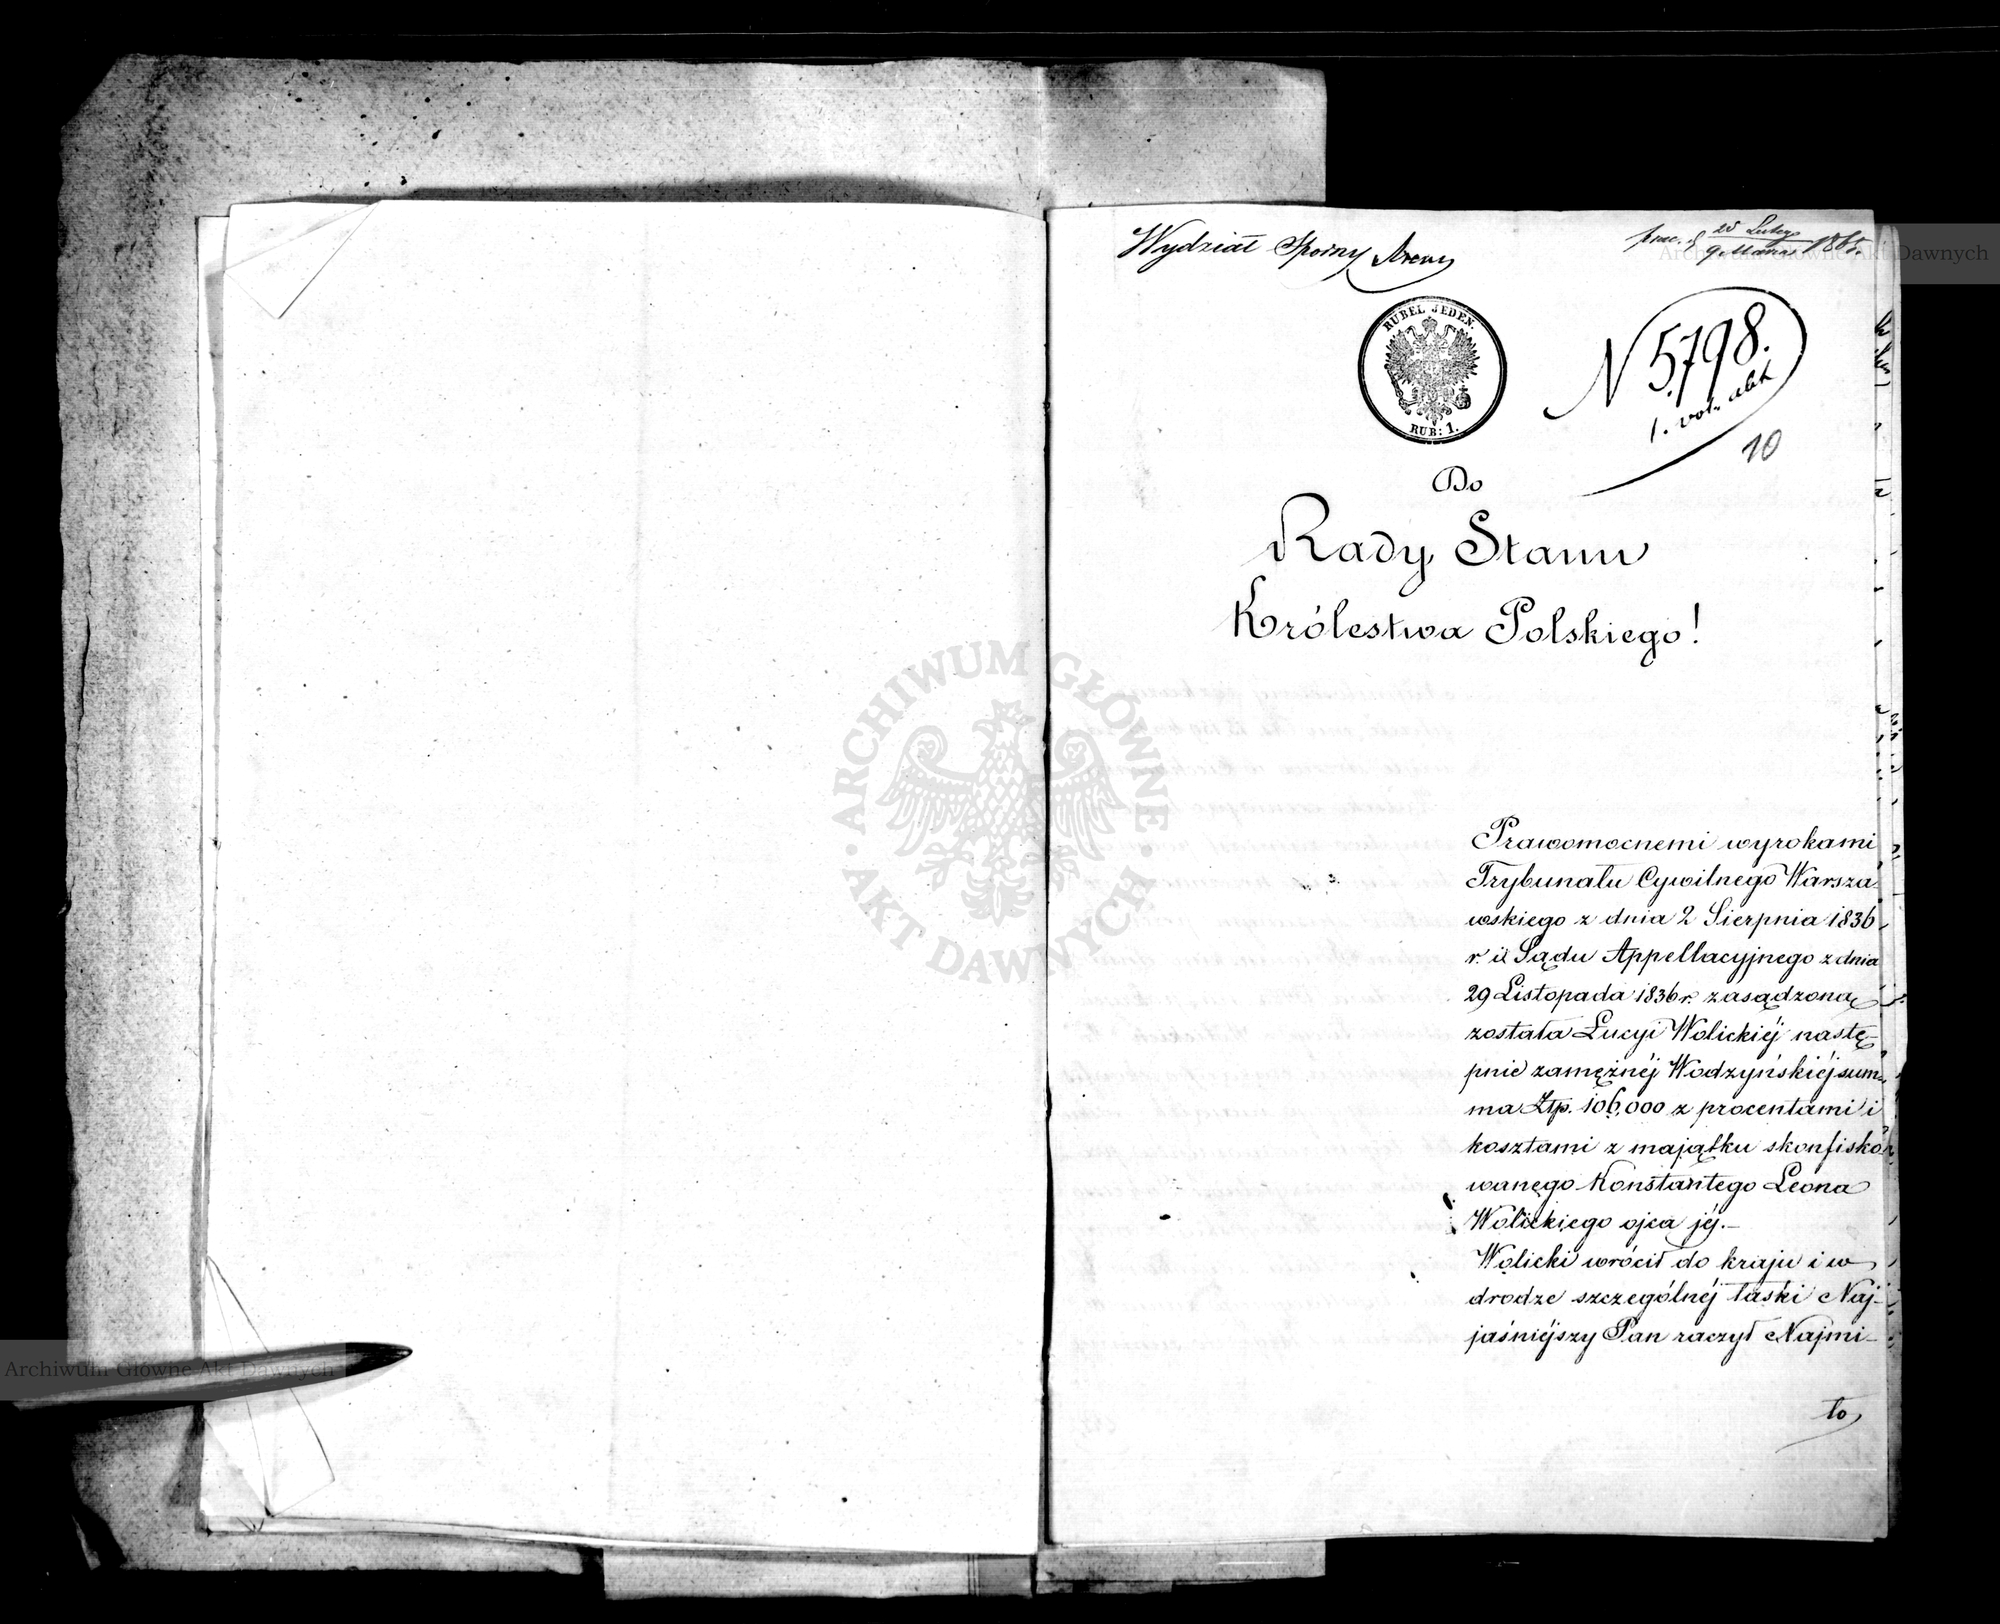 Wydział Sporny
25 Lutego
9 Marca 1865.
RUBEL JEDEN.
RUB: 1.
N 5798.
1. vol. akt
10
Do
Rady Stanu
Królestwa Polskiego!
Prawomocnemi wyrokami
Trybunału Cywilnego Warsza-
wskiego z dnia 2 Sierpnia 1836
r. i Sądu Appellacyjnego z dnia
29 Listopada 1836 r. zasądzoną
została Lucyi Wolickiéj nastę-
pnie zamężnéj Wodzyńskiéj sum-
ma Złp. 106,000 z procentami i
kosztami z majątku skonfisko-
wanego Konstantego Leona
Wolickiego ojca jéj.—
Wolicki wrócił do kraju i w
drodze szczególnéj łaski Naj-
jaśniéjszy Pan raczył Najmi-
to
ARCHIWUM GŁÓWNE AKT DAWNYCH
Archiwum Główne Akt Dawnych
Archiwum Główne Akt Dawnych